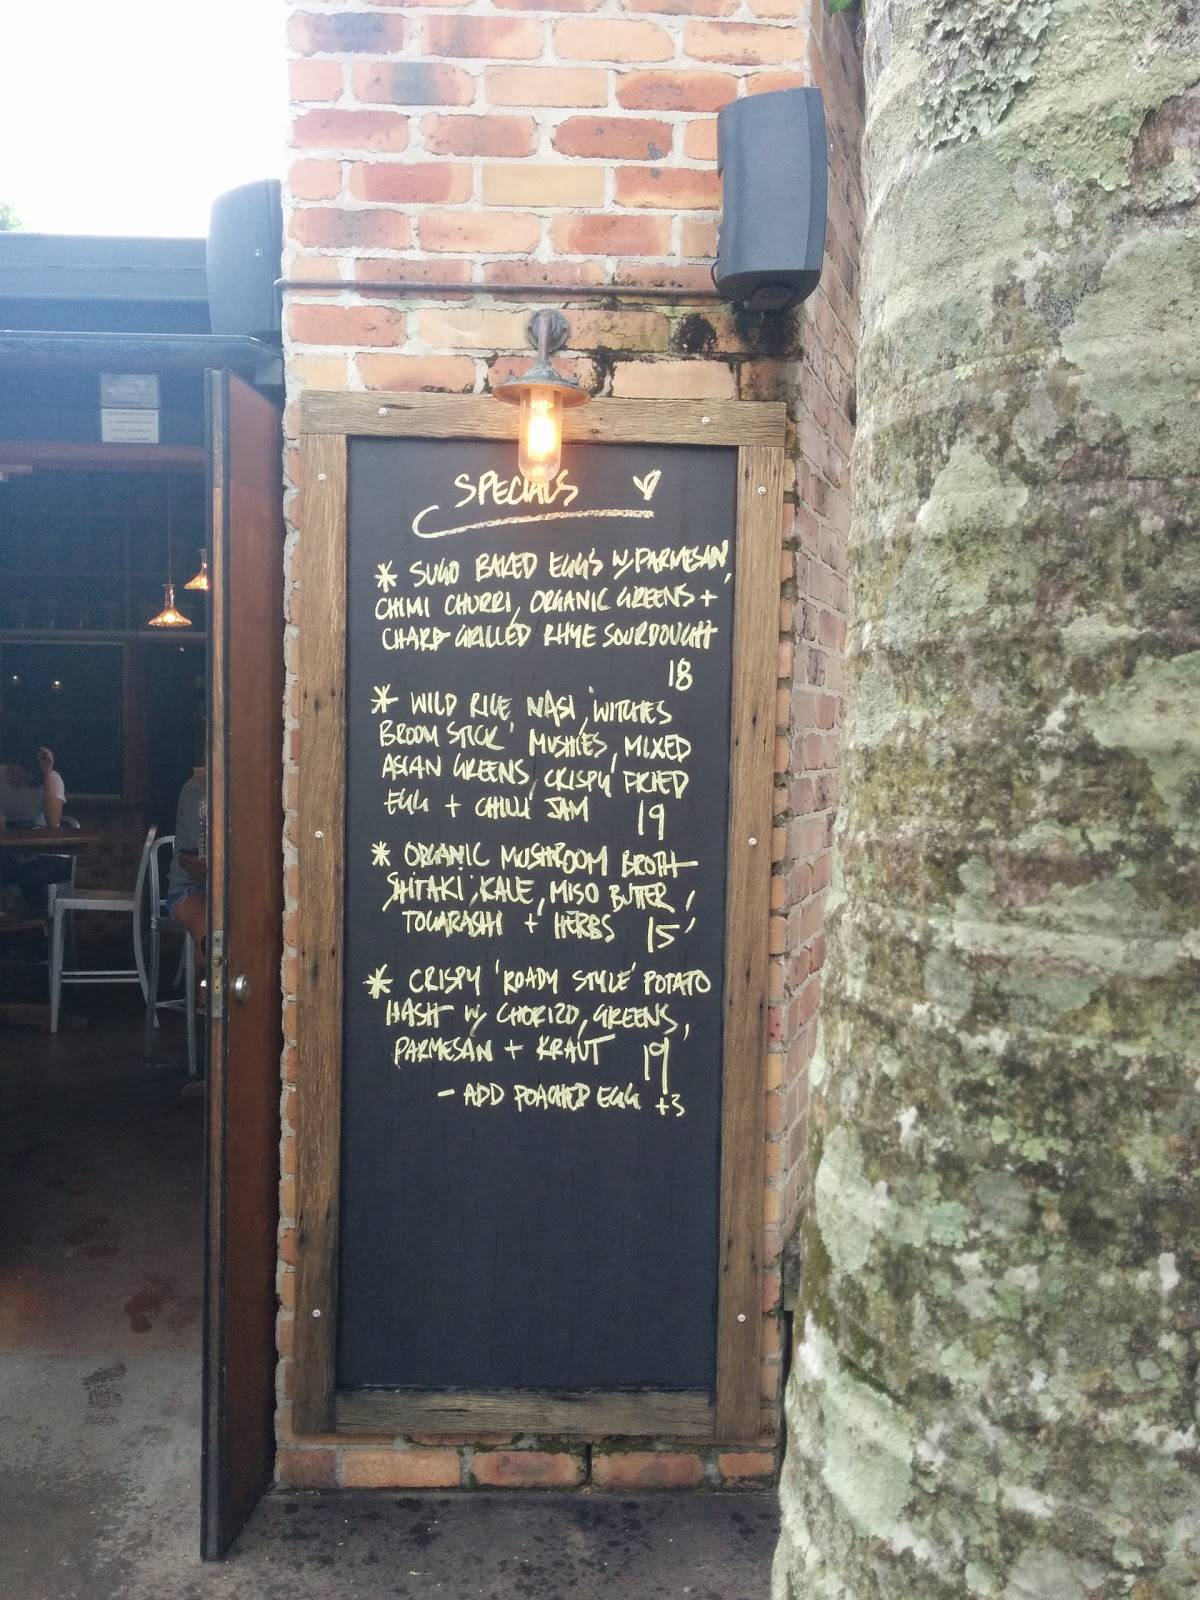 SPECIALS
* SUGO BAKED EGGS W/ PARMESAN,
CHIMI CHURRI, ORGANIC GREENS +
CHAR GRILLED RHYE SOURDOUGH
18
* WILD RICE NASI, 'WITCHES
BROOM STICK' MUSHIES, MIXED
ASIAN GREENS, CRISPY FRIED
EGG + CHILLI JAM 19
* ORGANIC MUSHROOM BROTH
SHITAKI, KALE, MISO BUTTER,
TOGARASHI + HERBS 15
* CRISPY 'ROADY STYLE' POTATO
HASH W/ CHORIZO, GREENS,
PARMESAN + KRAUT 19
- ADD POACHED EGG +3